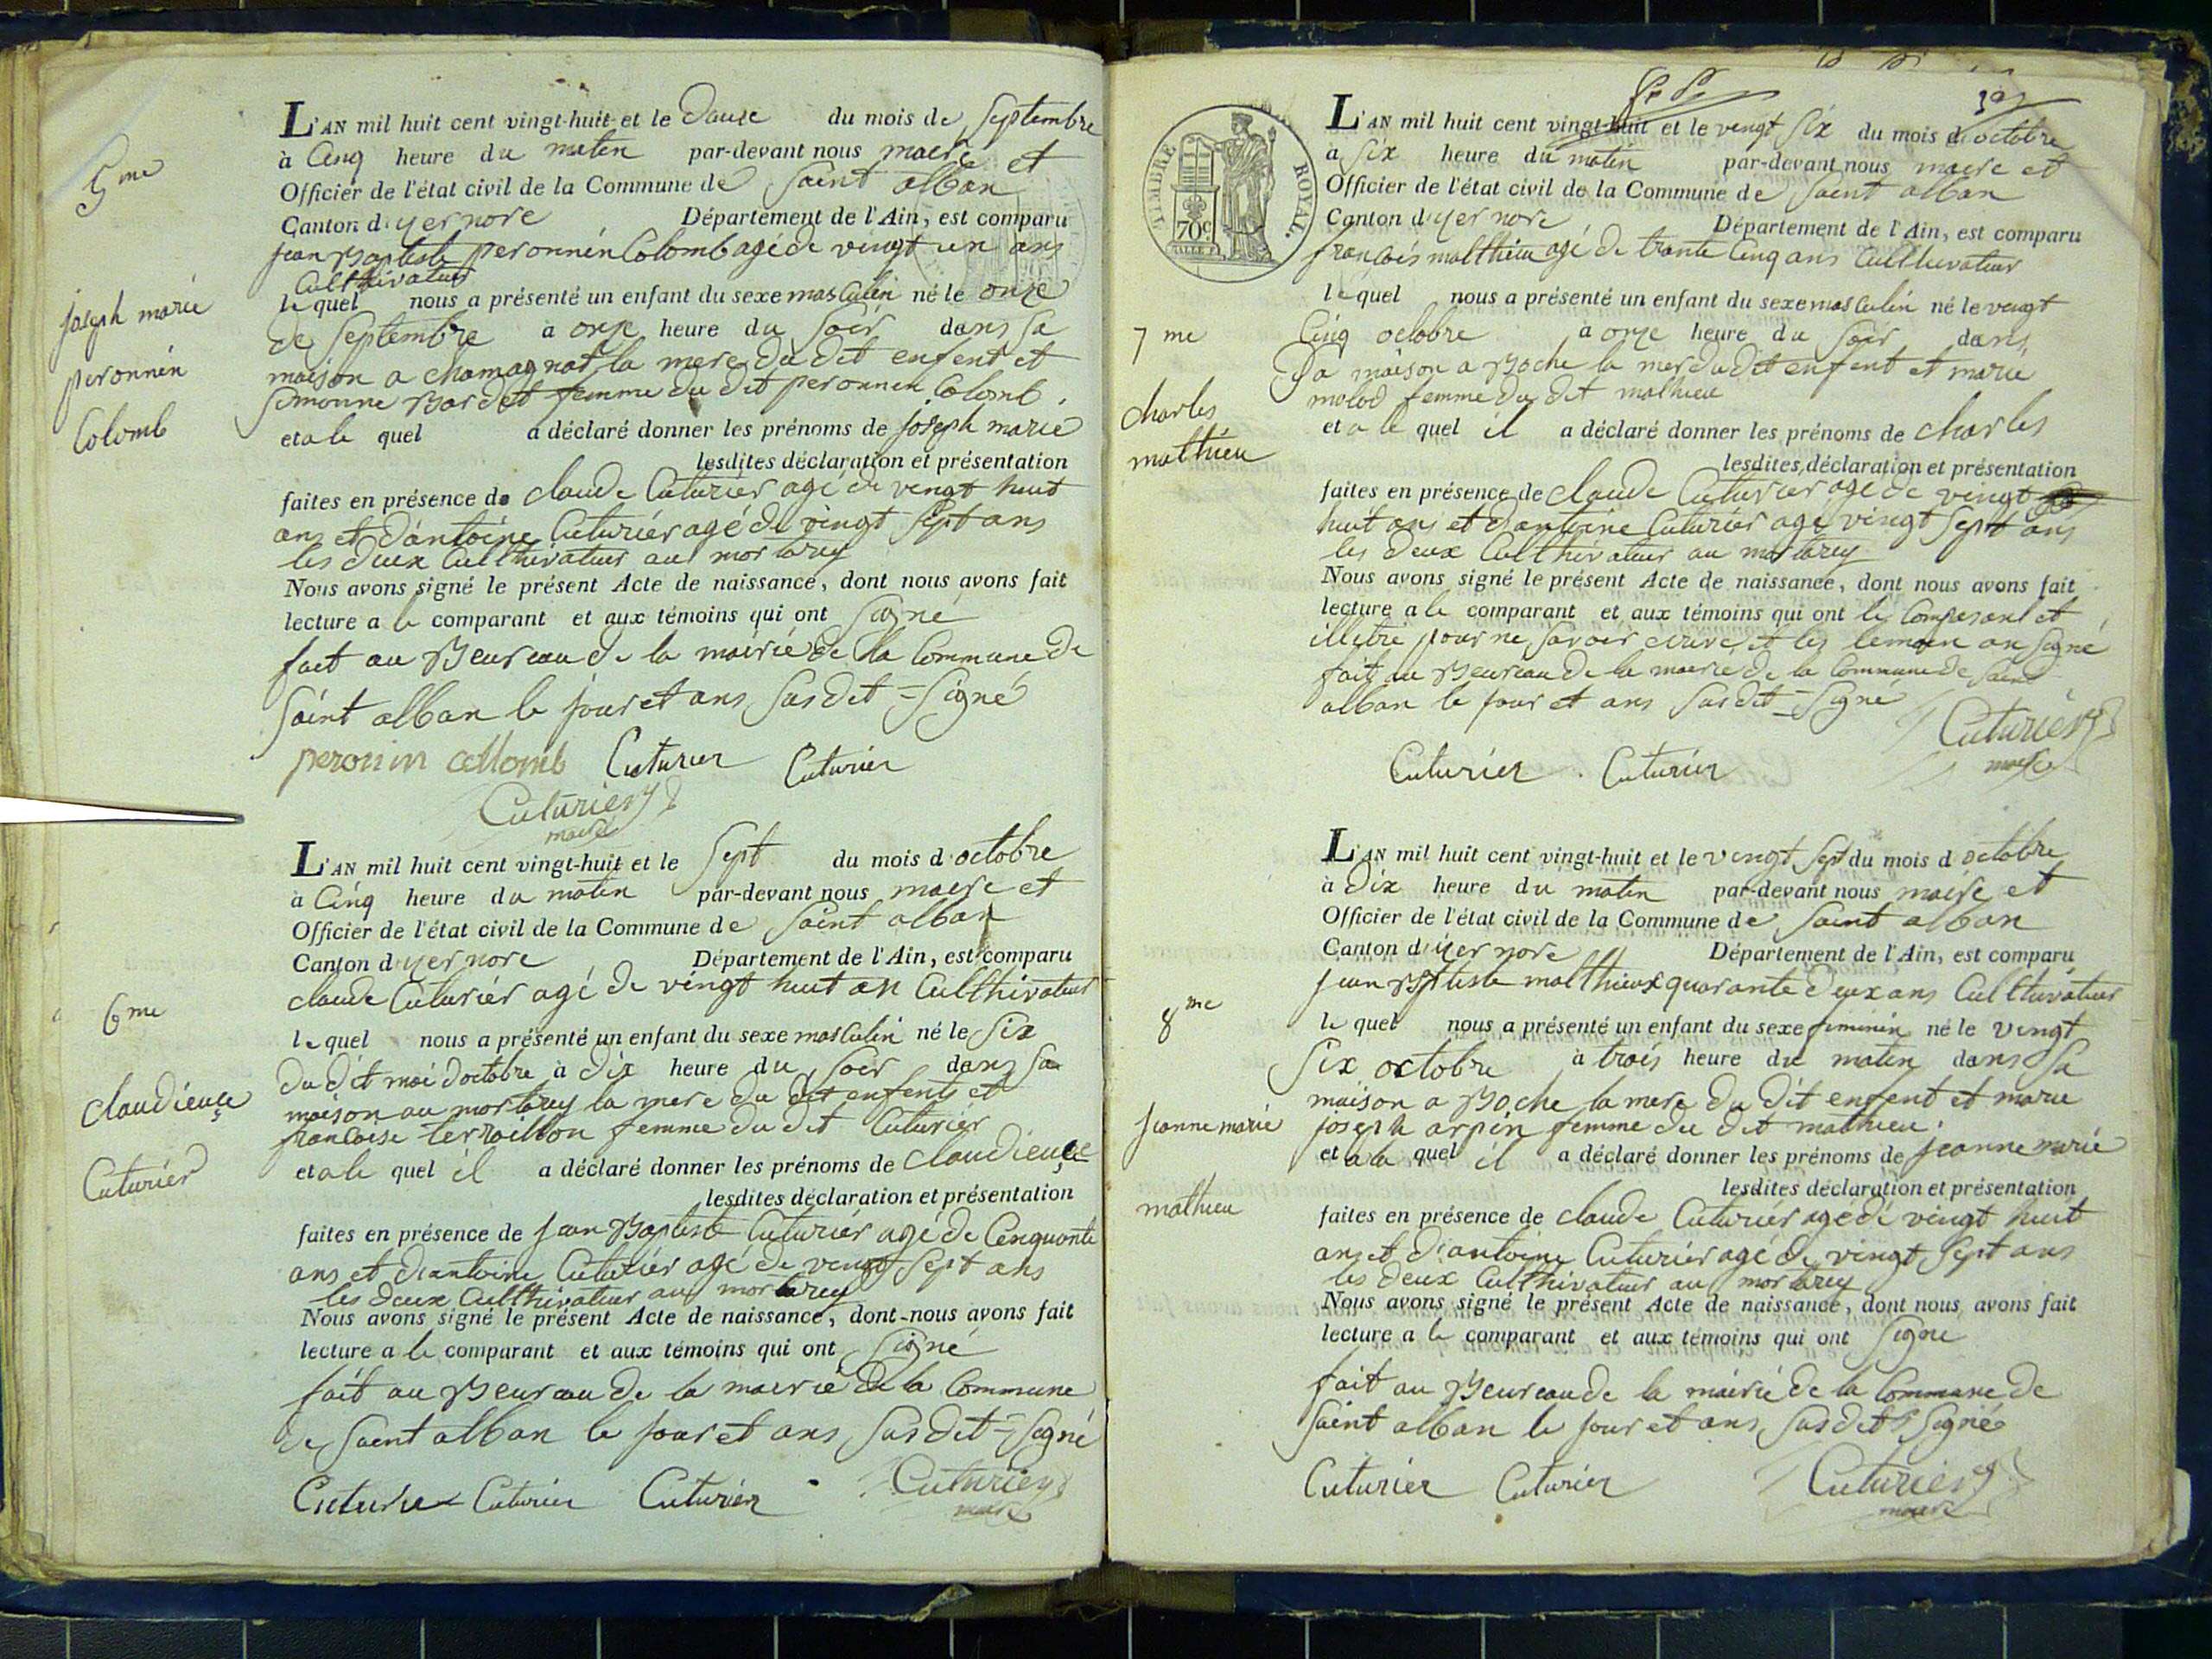 5me
joseph marie
peronnin
Colomb
L'AN mil huit cent vingt-huit et le Douze du mois de Septembre
à Cinq heure du matin par-devant nous maire et
Officier de l'état civil de la Commune de Saint alban
Canton d'yernore Département de l'Ain, est comparu
jean Baptiste peronnin Colomb agé de vingt un ans
Culthivateur
le quel nous a présenté un enfant du sexe masculin né le onze
de Septembre à onze heure du Soir dans Sa
maison a chamagnat la mere du dit enfent et
Simonne Bordet femme du dit peronnin Colomb.
et a le quel a déclaré donner les prénoms de joseph marie
lesdites déclaration et présentation
faites en présence de claude Cuturier agé de vingt huit
ans et d'antoine Cuturier agé de vingt Sept ans
les deux Culthivateur au mortarey
Nous avons signé le présent Acte de naissance, dont nous avons fait
lecture a le comparant et aux témoins qui ont Signé
fait au Beureau de la mairie de la Commune de
Saint alban le jour et ans Susdit = Signé
peronin collomb Cuturier Cuturier
Cuturier
maire
6me
claudieuçe
Cuturier
L'AN mil huit cent vingt-huit et le Sept du mois d'octobre
à Cinq heure du matin par-devant nous maire et
Officier de l'état civil de la Commune de Saint alban
Canton d'yernore Département de l'Ain, est comparu
claude Cuturier agé de vingt huit an Culthivateur
le quel nous a présenté un enfant du sexe masculin né le Six
du dit moi doctobre à dix heure du Soir dans Sa
maison au mortarey la mere du dit enfent et
francoise terraillon femme du dit Cuturier
et a le quel il a déclaré donner les prénoms de claudieuçe
lesdites déclaration et présentation
faites en présence de jean Baptiste Cuturier agé de Cenquante
ans et d'antoine Cuturier agé de vingt Sept ans
les deux Culthivateur au mortarey
Nous avons signé le présent Acte de naissance, dont nous avons fait
lecture a le comparant et aux témoins qui ont Signé
fait au Beureau de la mairie de la Commune
de Saint alban le jour et ans Susdit = Signé
Cuturier Cuturier Cuturier Cuturier
maire
TIMBRE ROYAL.
70c
7me
charles
mathieu
L'AN mil huit cent vingt-huit et le vingt Six du mois d'octobre
à Six heure du matin par-devant nous maire et
Officier de l'état civil de la Commune de Saint alban
Canton d'yernore Département de l'Ain, est comparu
francois malthieu agé de trante Cinq ans Culthivateur
le quel nous a présenté un enfant du sexe masculin né le vengt
Cinq octobre à onze heure du Soir dans
Sa maison a Boche la mer du dit enfent et marie
molod femme du dit mathieu
et a le quel il a déclaré donner les prénoms de charles
lesdites déclaration et présentation
faites en présence de claude Cuturier agé de vingt
huit ans et d'antoine Cuturier age vingt Sept ans
les deux Culthivateur au mortarey
Nous avons signé le présent Acte de naissance, dont nous avons fait
lecture a le comparant et aux témoins qui ont le Comparant et
illetré pour ne Savoir ecrire et les temoin on Signé
fait au Beureau de la mairie de la Commune de Saint
alban le jour et ans Susdit = Signé
Cuturier
maire
Cuturier Cuturier
8me
Jeanne marie
mathieu
L'AN mil huit cent vingt-huit et le vingt Sept du mois d octobre
à Dix heure du matin par-devant nous maire et
Officier de l'état civil de la Commune de Saint alban
Canton d'yernore Département de l'Ain, est comparu
jean Bptiste malthieux quarante deux ans Culthivateur
le quel nous a présenté un enfant du sexe feminin né le vingt
Six octobre à trois heure du matin dans Sa
maison a Boche la mere du dit enfent et marie
joseph arpin femme du dit mathieu.
et a la quel il a déclaré donner les prénoms de jeanne marie
lesdites déclaration et présentation
faites en présence de claude Cuturier agé de vingt huit
ans et d'antoine Cuturier agé de vingt Sept ans
les deux Culthivateur au mortarey
Nous avons signé le présent Acte de naissance, dont nous avons fait
lecture a le comparant et aux témoins qui ont Signé
fait au Beureau de la mairie de la Commune de
Saint alban le jour et ans Susdit Signé
Cuturier Cuturier Cuturier
maire